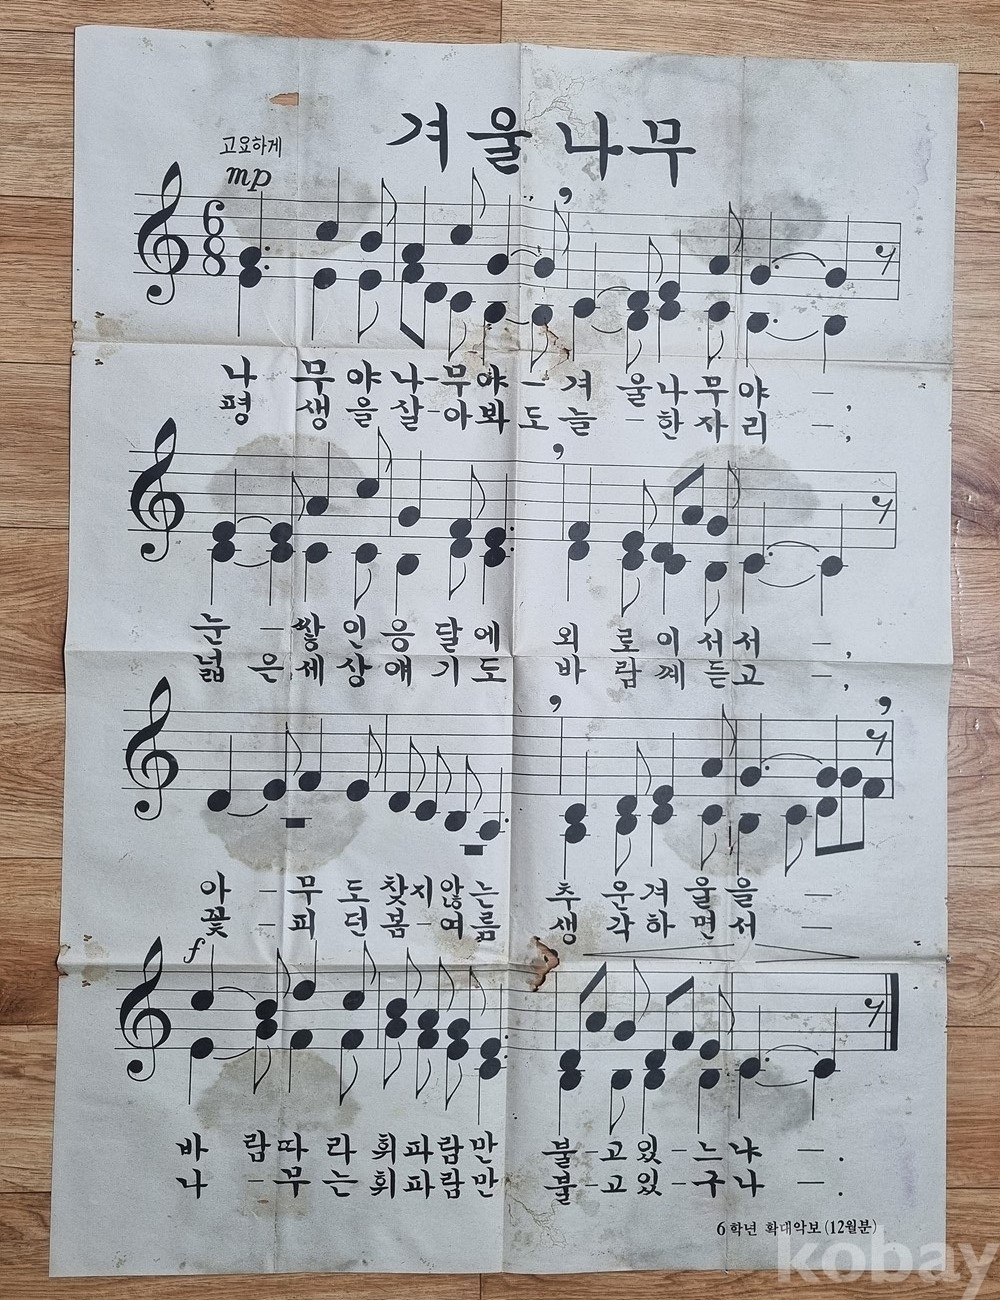 겨울나무
고요하게
mp
6
8
나 무야나-무야-겨 울나무야 -,
평 생을살-아봐도늘 -한자리 -,
눈 -쌓인응달에 외 로이서서 -,
넓 은세상얘기도 바 람께듣고 -,
아 -무도찾지않는 추 운겨울을 -
꽃 -피던봄-여름 생 각하면서 -
f
바 람따라휘파람만 불-고있-느냐 -.
나 -무는휘파람만 불-고있-구나 -.
6학년 확대악보(12월분)
kobay